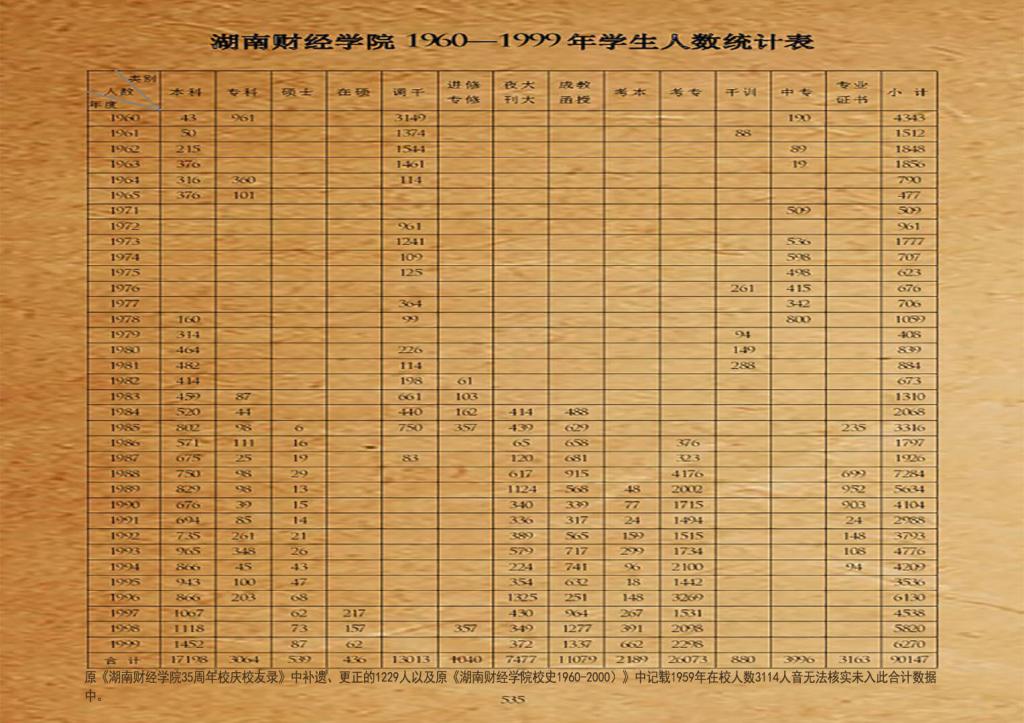 湖南财经学院 1960—1999 年学生人数统计表
类别 人数 年度 本科 专科 硕士 在硕 调干 进修专修 夜大刊大 成教函授 考本 考专 干训 中专 专业证书 小计
1960 43 961 3149 190 4343
1961 50 1374 88 1512
1962 215 1544 89 1848
1963 376 1461 19 1856
1964 316 360 114 790
1965 376 101 477
1971 509 509
1972 961 961
1973 1241 536 1777
1974 109 598 707
1975 125 498 623
1976 261 415 676
1977 364 342 706
1978 160 99 800 1059
1979 314 94 408
1980 464 226 149 839
1981 482 114 288 884
1982 414 198 61 673
1983 459 87 661 103 1310
1984 520 44 440 162 414 488 2068
1985 802 98 6 750 357 439 629 235 3316
1986 571 111 16 65 658 376 1797
1987 675 25 19 83 120 681 323 1926
1988 750 98 29 617 915 4176 699 7284
1989 829 98 13 1124 568 48 2002 952 5634
1990 676 39 15 340 339 77 1715 903 4104
1991 694 85 14 336 317 24 1494 24 2988
1992 735 261 21 389 565 159 1515 148 3793
1993 965 348 26 579 717 299 1734 108 4776
1994 866 45 43 224 741 96 2100 94 4209
1995 943 100 47 354 632 18 1442 3536
1996 866 203 68 1325 251 148 3269 6130
1997 1067 62 217 430 964 267 1531 4538
1998 1118 73 157 357 349 1277 391 2098 5820
1999 1452 87 62 372 1337 662 2298 6270
合计 17198 3064 539 436 13013 1040 7477 11079 2189 26073 880 3996 3163 90147
原《湖南财经学院35周年校庆校友录》中补遗、更正的1229人以及原《湖南财经学院校史1960-2000）》中记载1959年在校人数3114人音无法核实未入此合计数据
中。
535